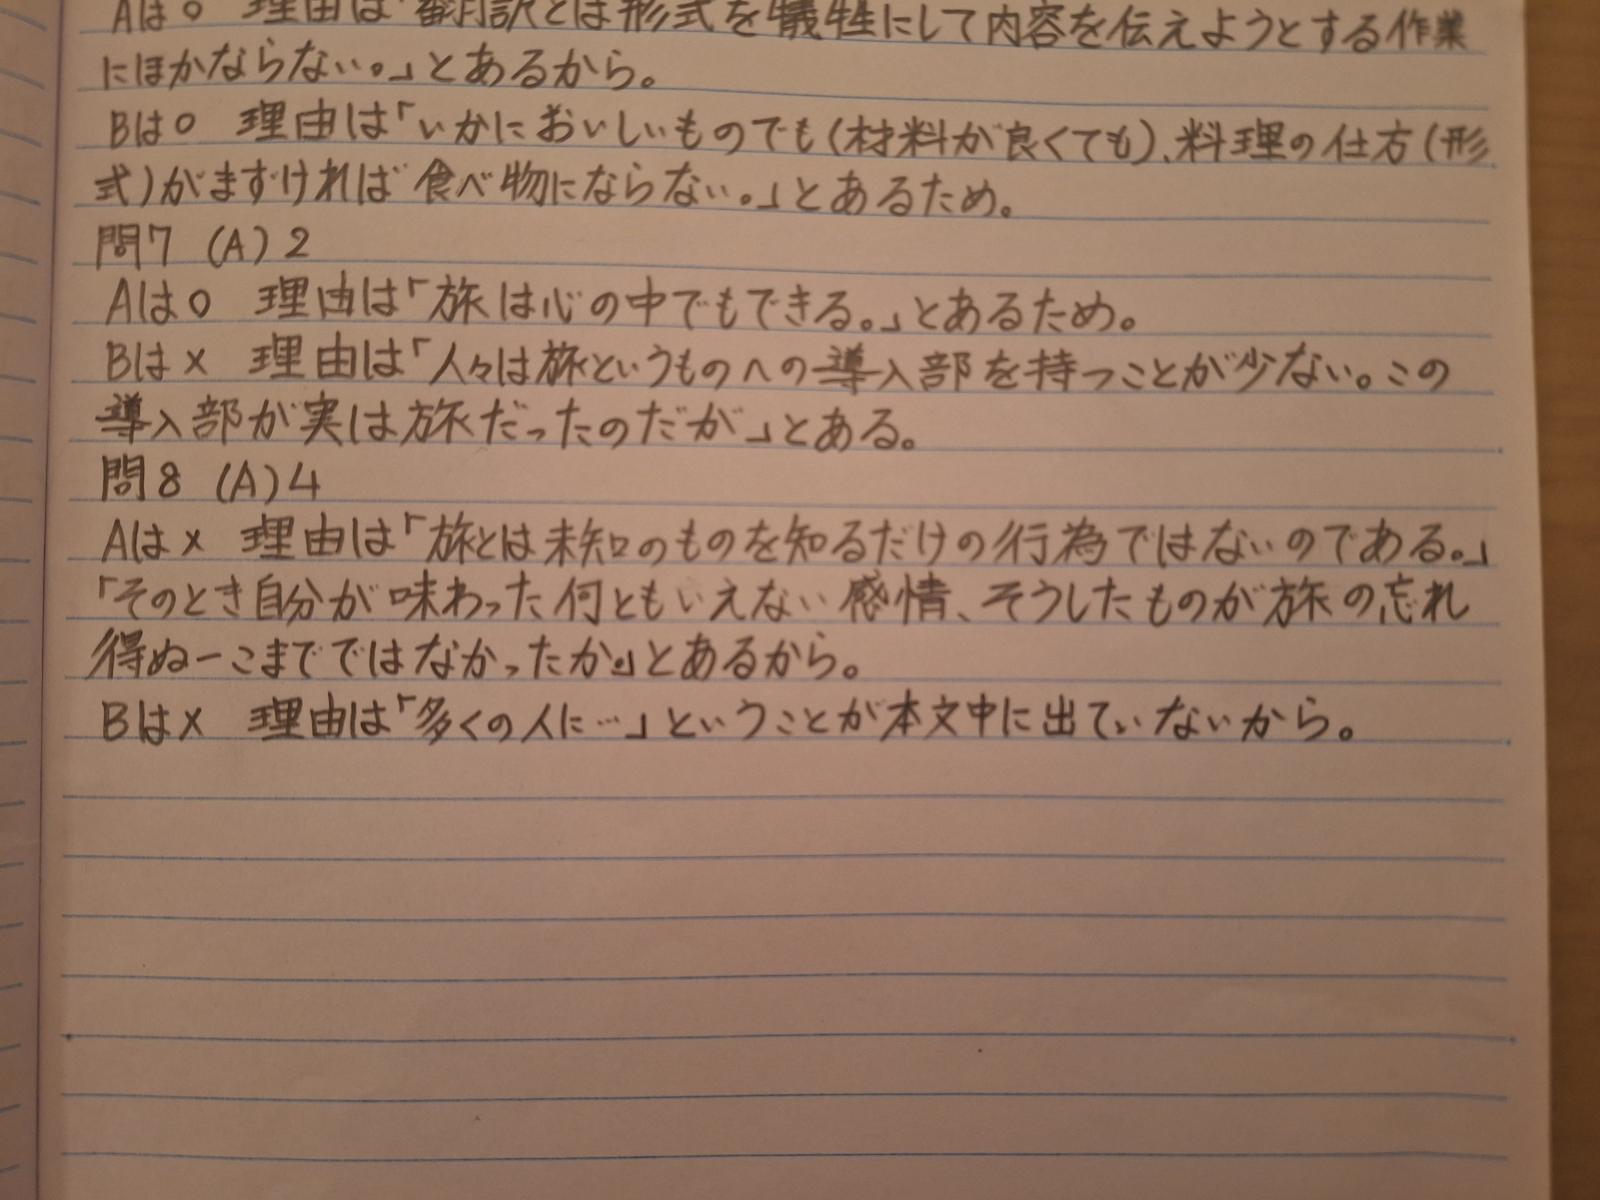 Aは○ 理由は「翻訳とは形式を犠牲にして内容を伝えようとする作業
にほかならない。」とあるから。
Bは○ 理由は「いかにおいしいものでも(材料が良くても)、料理の仕方(形
式)がまずければ食べ物にならない。」とあるため。
問7 (A)2
Aは○ 理由は「旅は心の中でもできる。」とあるため。
Bは× 理由は「人々は旅というものへの導入部を持つことが少ない。この
導入部が実は旅だったのだが」とある。
問8 (A)4
Aは× 理由は「旅とは未知のものを知るだけの行為ではないのである。」
「そのとき自分が味わった何ともいえない感情、そうしたものが旅の忘れ
得ぬ一こまでではなかったか。」とあるから。
Bは× 理由は「多くの人に…」ということが本文中に出ていないから。